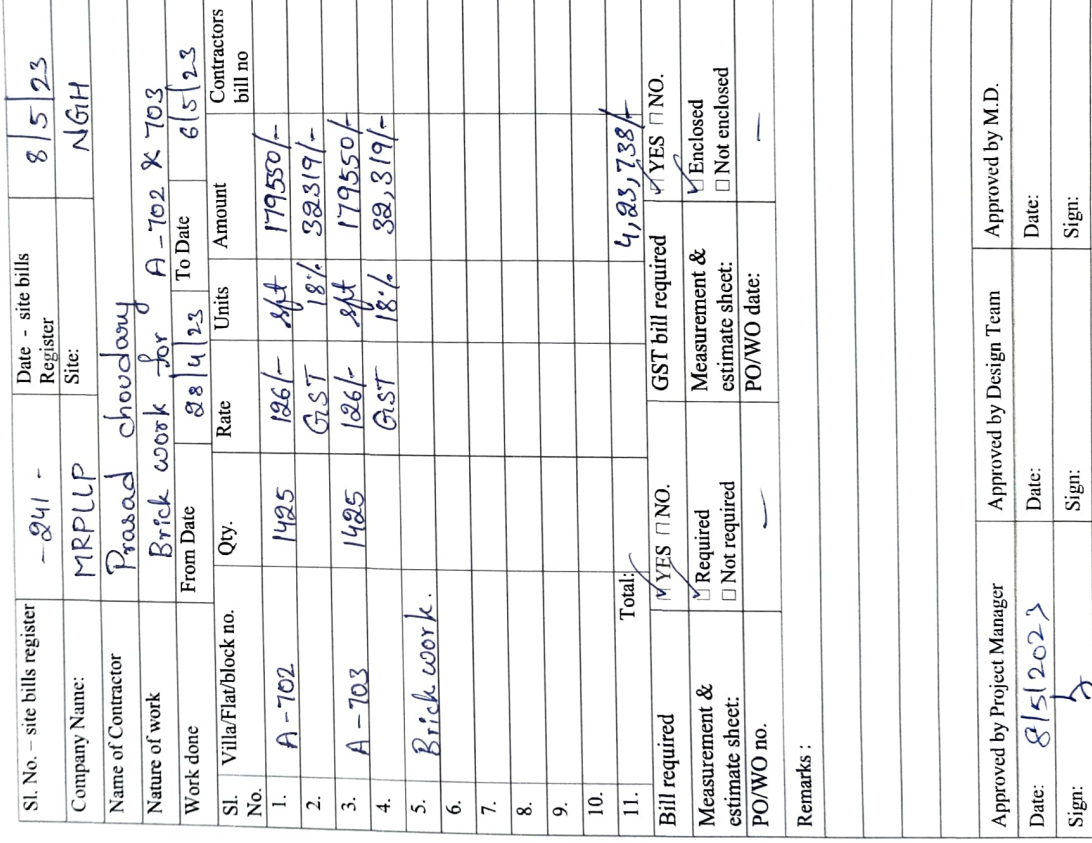 Sl. No. – site bills register -241- Date - site bills Register 8/5/23
Company Name: MRPLLP Site: NGH
Name of Contractor Prasad choudary
Nature of work Brick work for A-702 & 703
Work done From Date 28/4/23 To Date 6/5/23
Sl. No. Villa/Flat/block no. Qty. Rate Units Amount Contractors bill no
1. A-702 1425 126/- sft 179550/-
2. GST 18% 32319/-
3. A-703 1425 126/- sft 179550/-
4. GST 18% 32,319/-
5. Brick work.
6.
7.
8.
9.
10.
11. Total: 4,23,738/-
Bill required ☑ YES ☐ NO. GST bill required ☑ YES ☐ NO.
Measurement & estimate sheet: ☑ Required ☐ Not required Measurement & estimate sheet: ☑ Enclosed ☐ Not enclosed
PO/WO no. — PO/WO date: —
Remarks :
Approved by Project Manager Approved by Design Team Approved by M.D.
Date: 8/5/2023 Date: Date:
Sign: Sign: Sign: